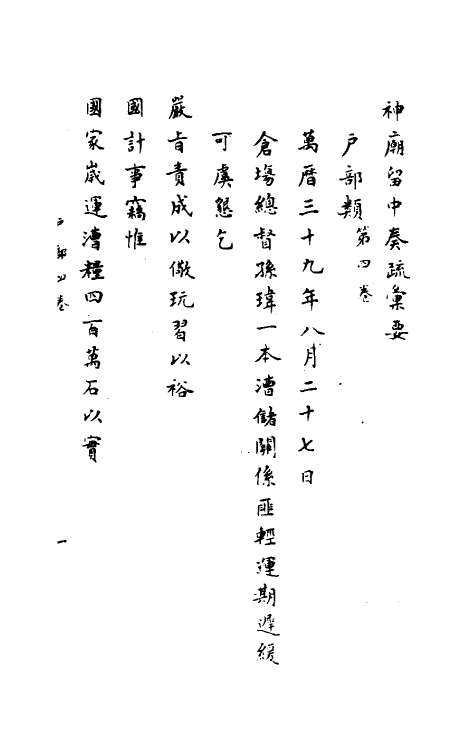 神廟留中奏疏彙要
戶部類第四卷
萬曆三十九年八月二十七日
倉場總督孫瑋一本漕儲關係匪輕運期遲緩
可虞懇乞
嚴旨責成以儆玩習以裕
國計事竊惟
國家歲運漕糧四百萬石以實
戶部四卷
一